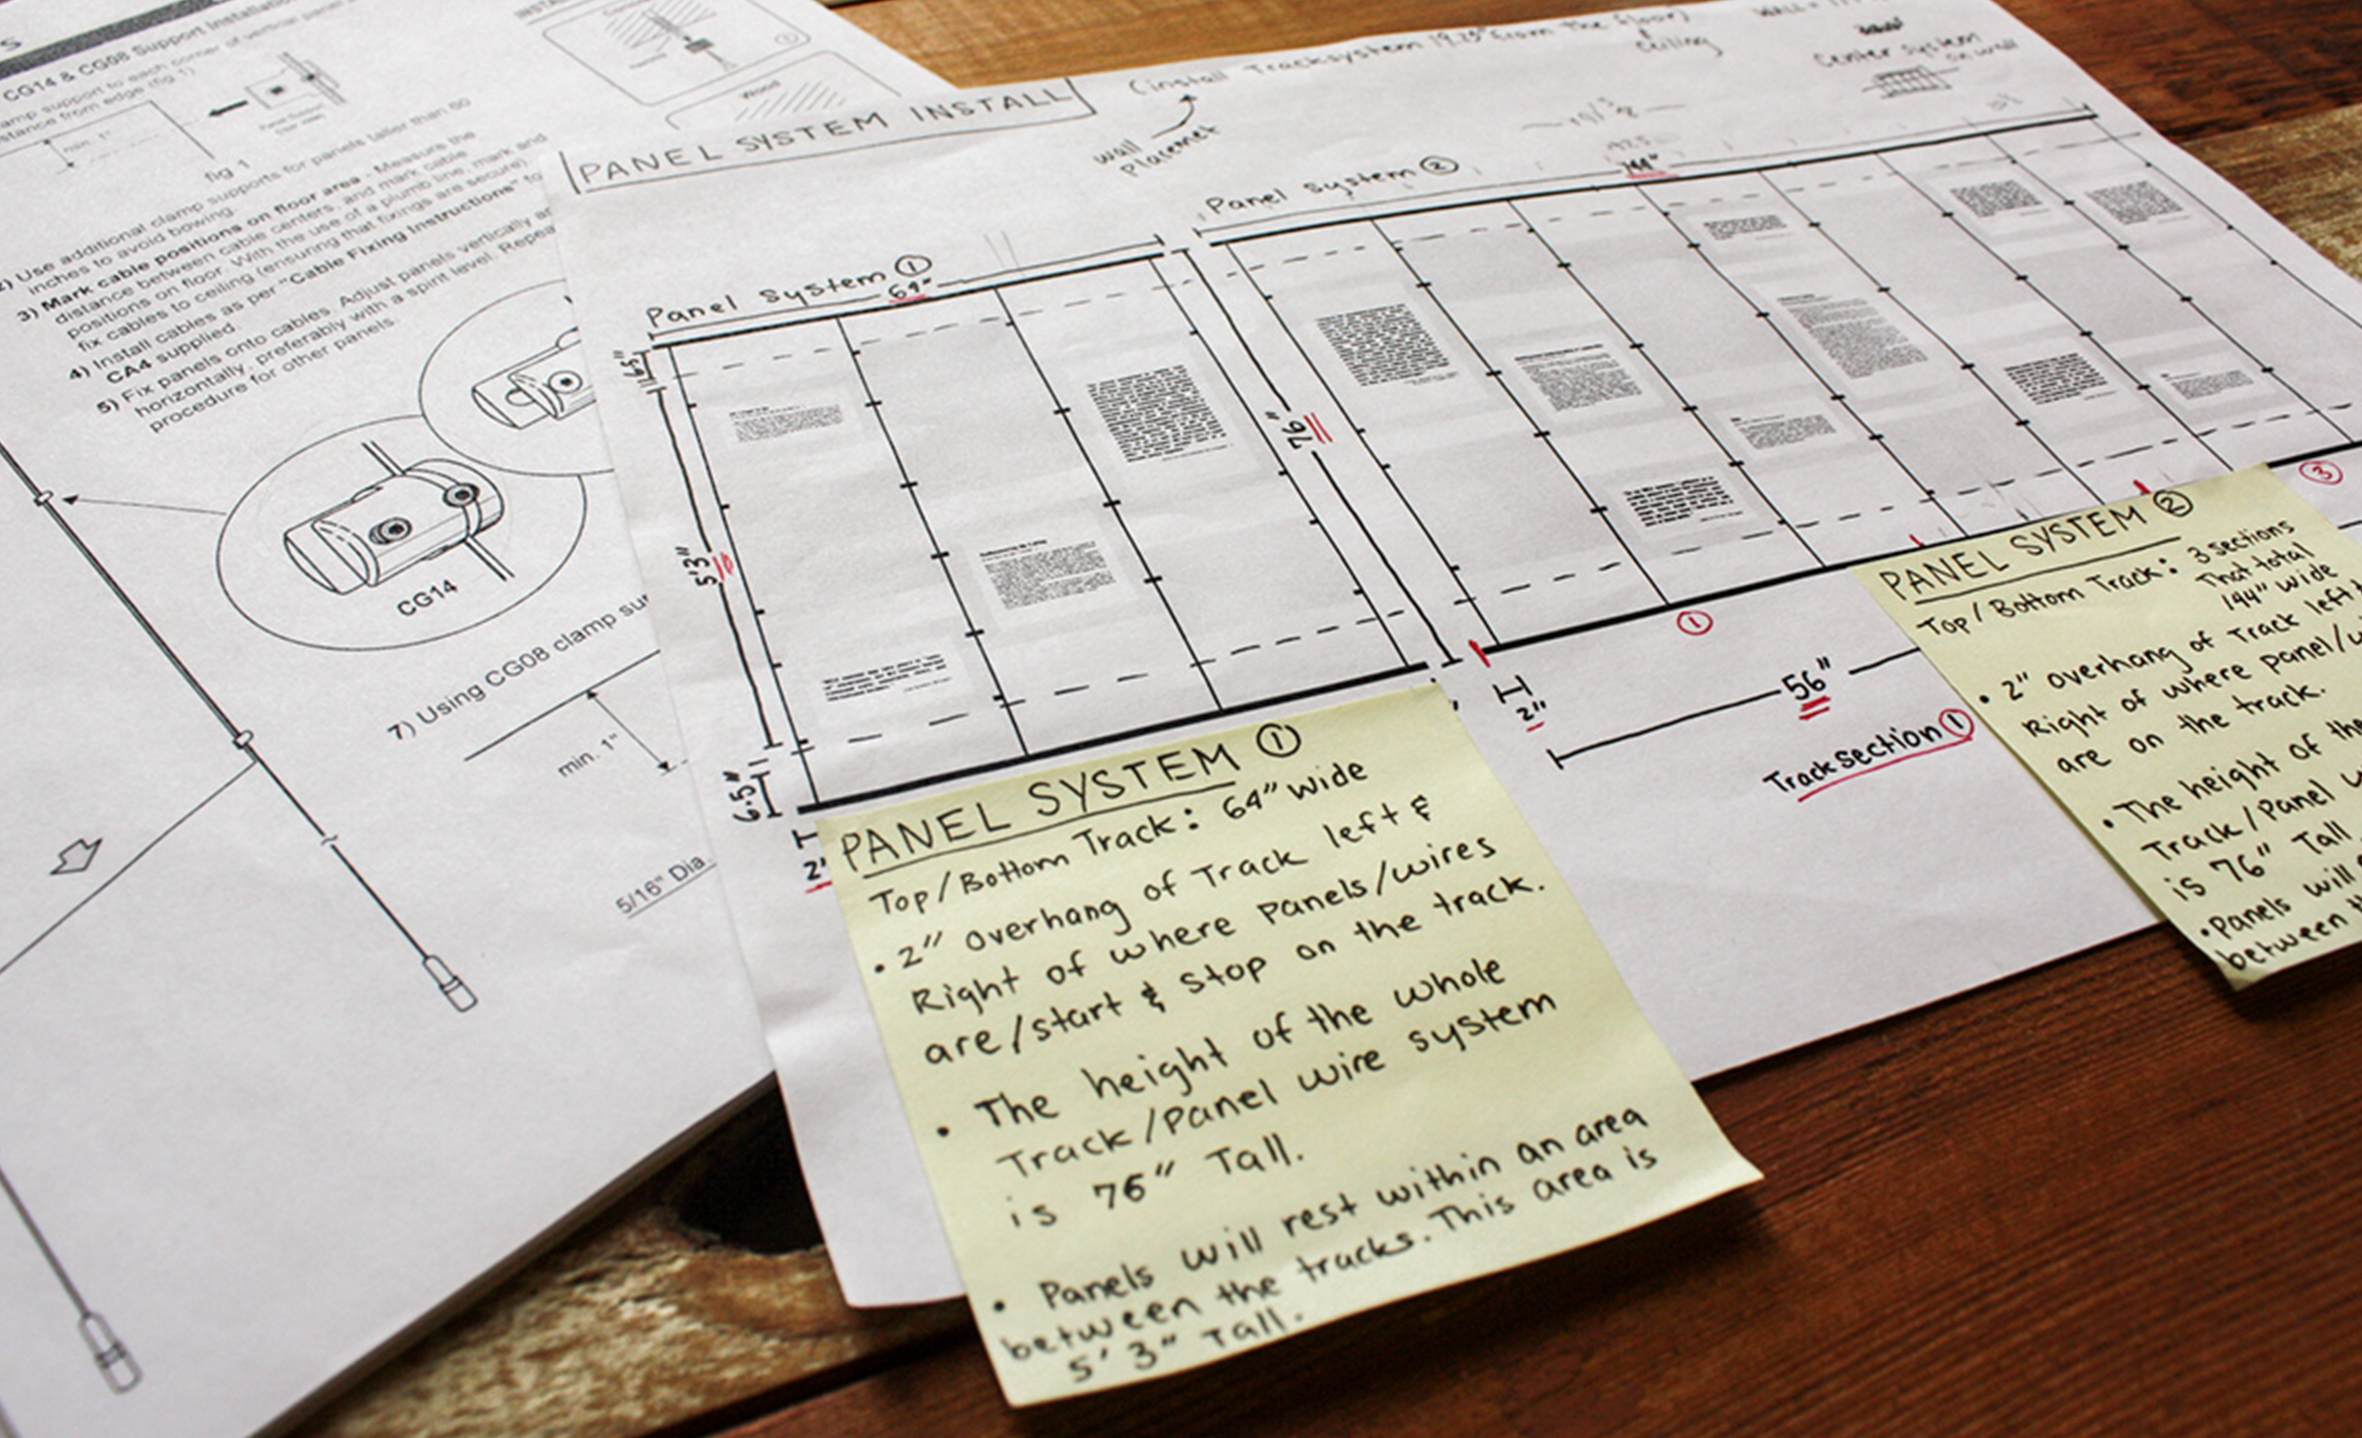 S
CG14 & CG08 Support Installation
amp support to each corner of vertical panel
stance from edge (fig 1)
min. 1"
fig 1
2) Use additional clamp supports for panels taller than 60
inches to avoid bowing.
3) Mark cable positions on floor area - Measure the
distance between cable centers, and mark cable
positions on floor. With the use of a plumb line, mark and
fix cables to ceiling (ensuring that fixings are secure).
4) Install cables as per "Cable Fixing Instructions" fo
CA4 supplied.
5) Fix panels onto cables. Adjust panels vertically an
horizontally, preferably with a spirit level. Repea
procedure for other panels.
CG14
7) Using CG08 clamp sup
min. 1"
5/16" Dia
Wood
PANEL SYSTEM INSTALL
(install Tracksystem 19.25" from the floor)
& ceiling
wall
placemet
Center system
on wall
Panel System ①
64"
Panel System ②
144"
6.5"
5'3"
6.5"
2"
76"
①
③
2"
56"
Track section ①
PANEL SYSTEM ①
Top/Bottom Track: 64" wide
• 2" overhang of Track left &
Right of where panels/wires
are/start & stop on the track.
• The height of the whole
Track/Panel wire system
is 76" Tall.
• Panels will rest within an area
between the tracks. This area is
5' 3" Tall.
PANEL SYSTEM ②
Top/Bottom Track: 3 sections
That total
144" wide
• 2" overhang of Track left &
Right of where panel/w
are on the track.
• The height of the
Track/Panel w
is 76" Tall
• Panels will
between th